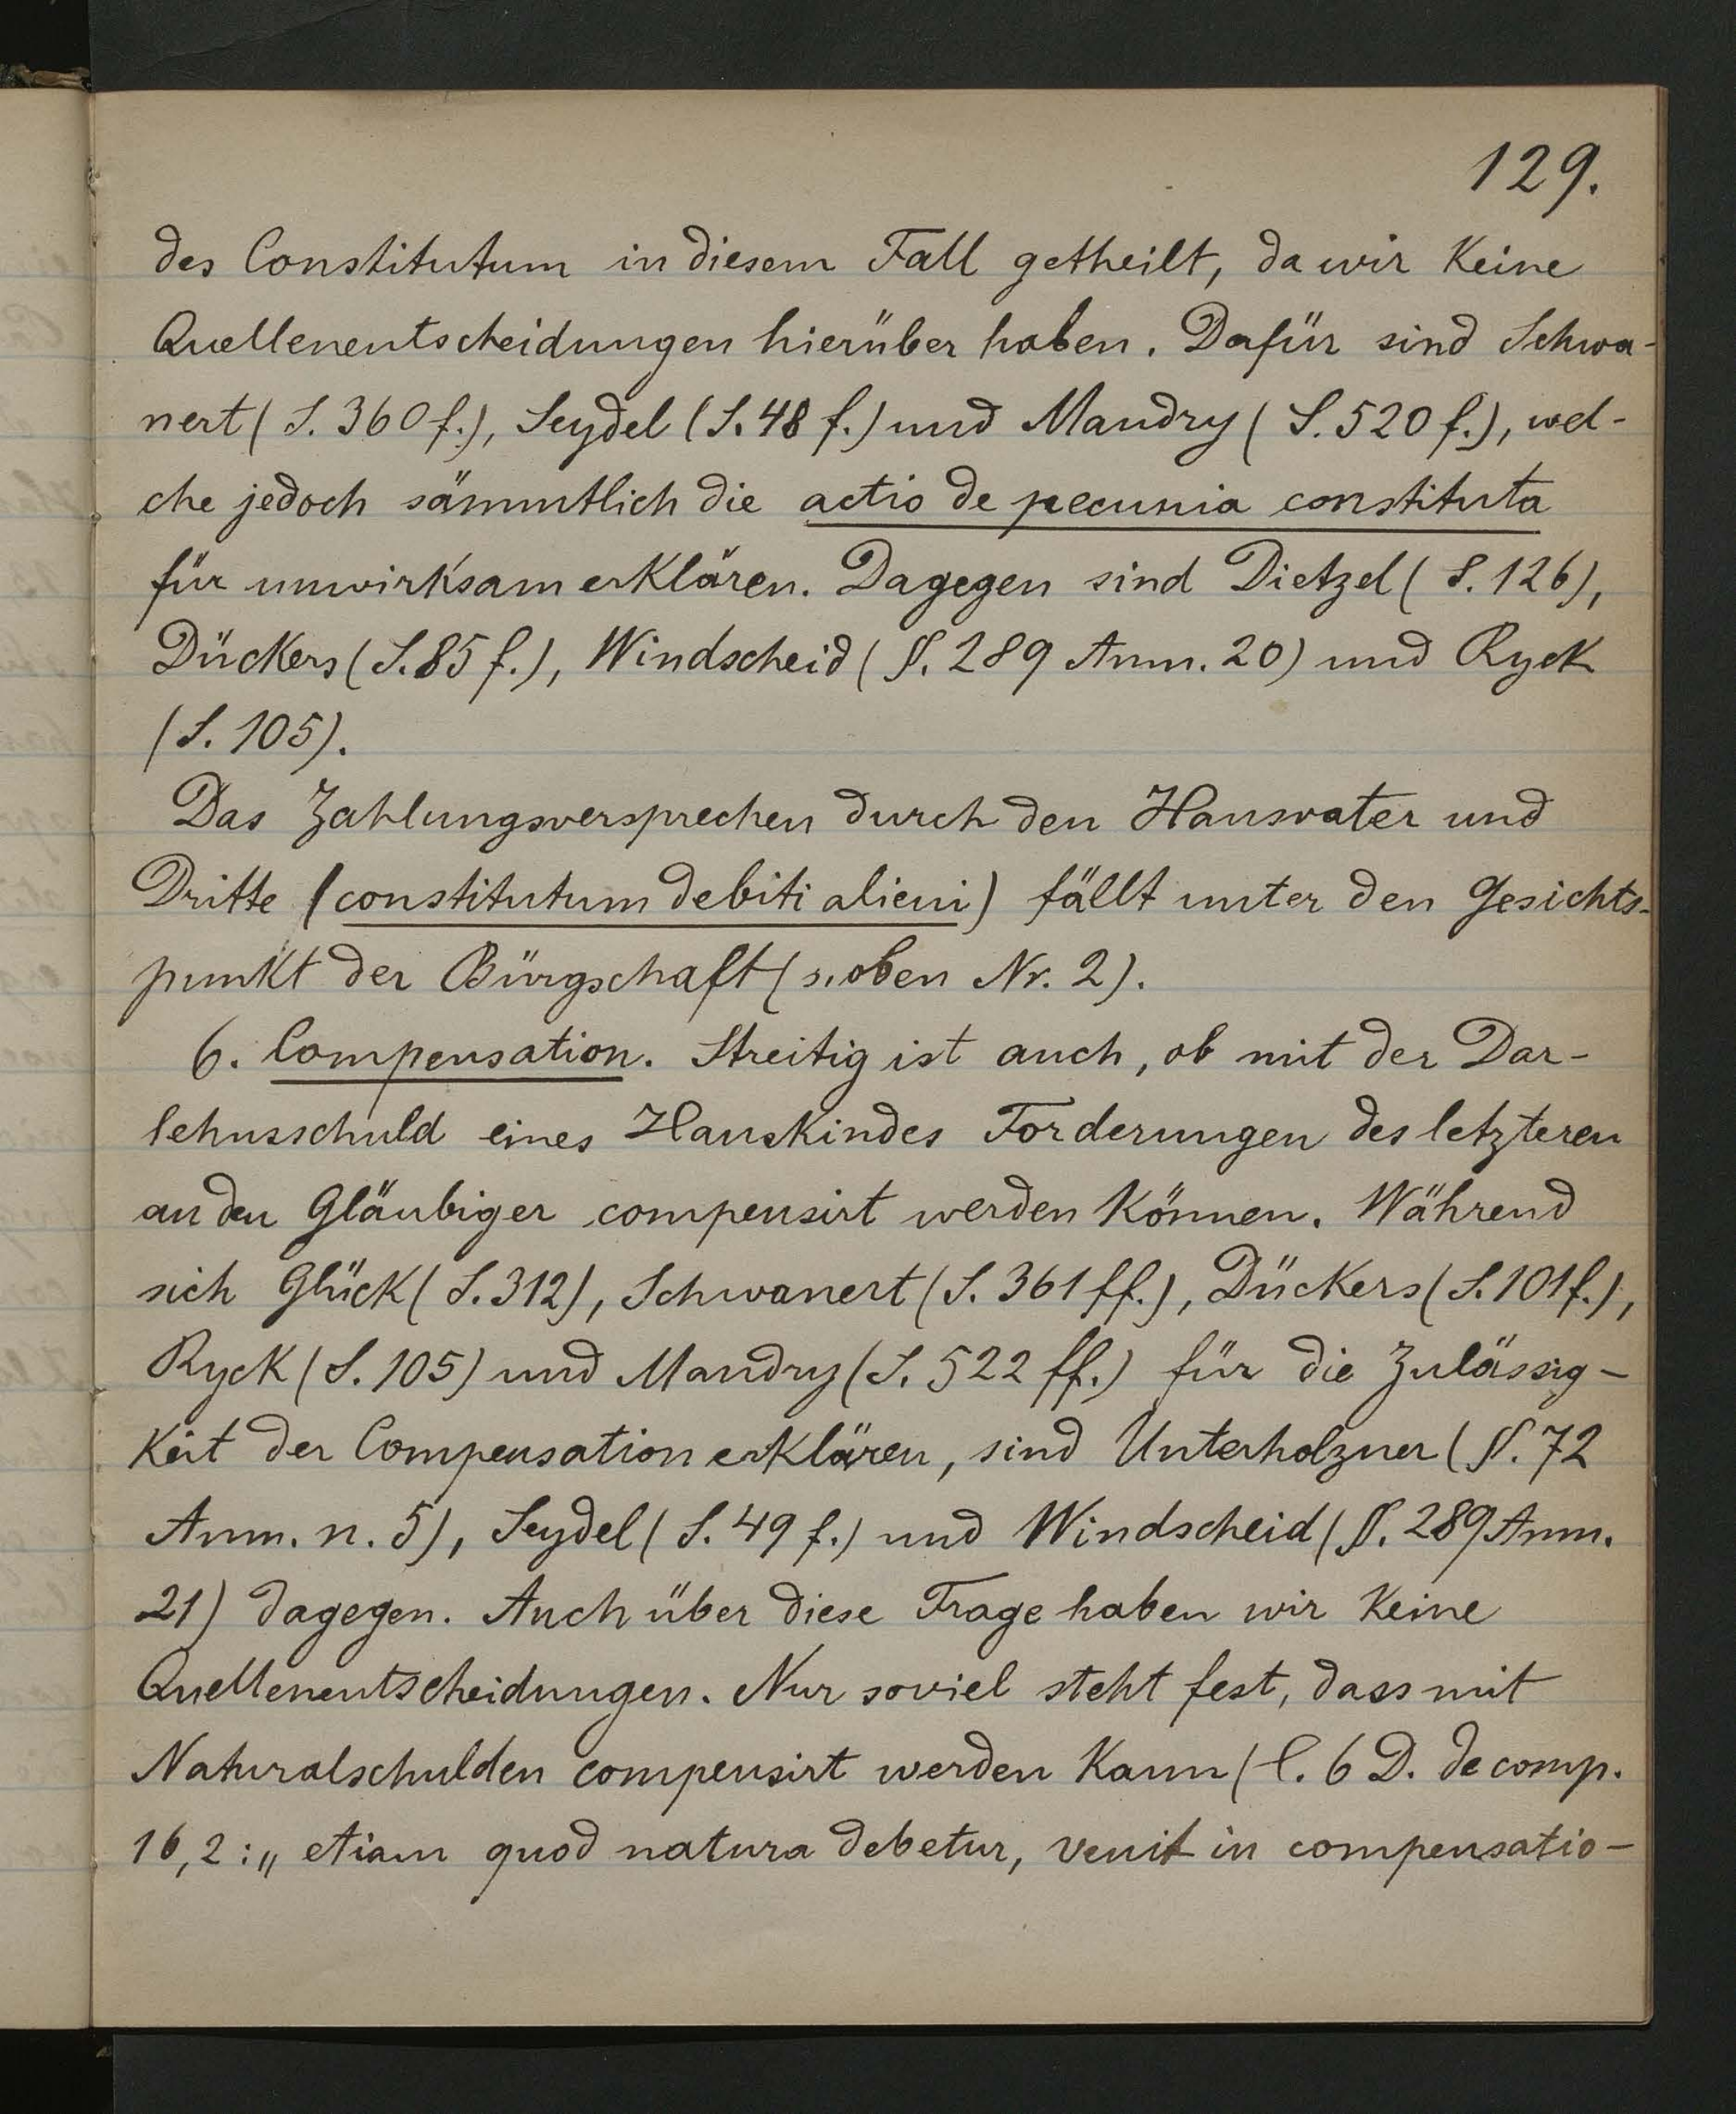 129.
des Constitutum in diesem Fall getheilt, da wir keine
Quellenentscheidungen hierüber haben. Dafür sind Schwa-
nert (S. 360 f.), Seydel (S. 48 f.) und Mandry (S. 520 f.), wel-
che jedoch sämmtlich die actio de pecunia constituta
für unwirksam erklären. Dagegen sind Dietzel (S. 126),
Dückers (S. 85 f.), Windscheid (§. 289 Anm. 20) und Ryck
(S. 105).
Das Zahlungsversprechen durch den Hausvater und
Dritte (constitutum debiti alieni) fällt unter den Gesichts-
punkt der Bürgschaft (s. oben Nr. 2).
6. Compensation. Streitig ist auch, ob mit der Dar-
lehnsschuld eines Hauskindes Forderungen des letzteren
an den Gläubiger compensirt werden können. Während
sich Glück (S. 312), Schwanert (S. 361 ff.), Dückers (S. 101 f.),
Ryck (S. 105) und Mandry (S. 522 ff.) für die Zulässig-
keit der Compensation erklären, sind Unterholzner (§. 72
Anm. n. 5), Seydel (S. 49 f.) und Windscheid (§. 289 Anm.
21) dagegen. Auch über diese Frage haben wir keine
Quellenentscheidungen. Nur soviel steht fest, dass mit
Naturalschulden compensirt werden kann (l. 6 D. de comp.
16,2: „etiam quod natura debetur, venit in compensatio-